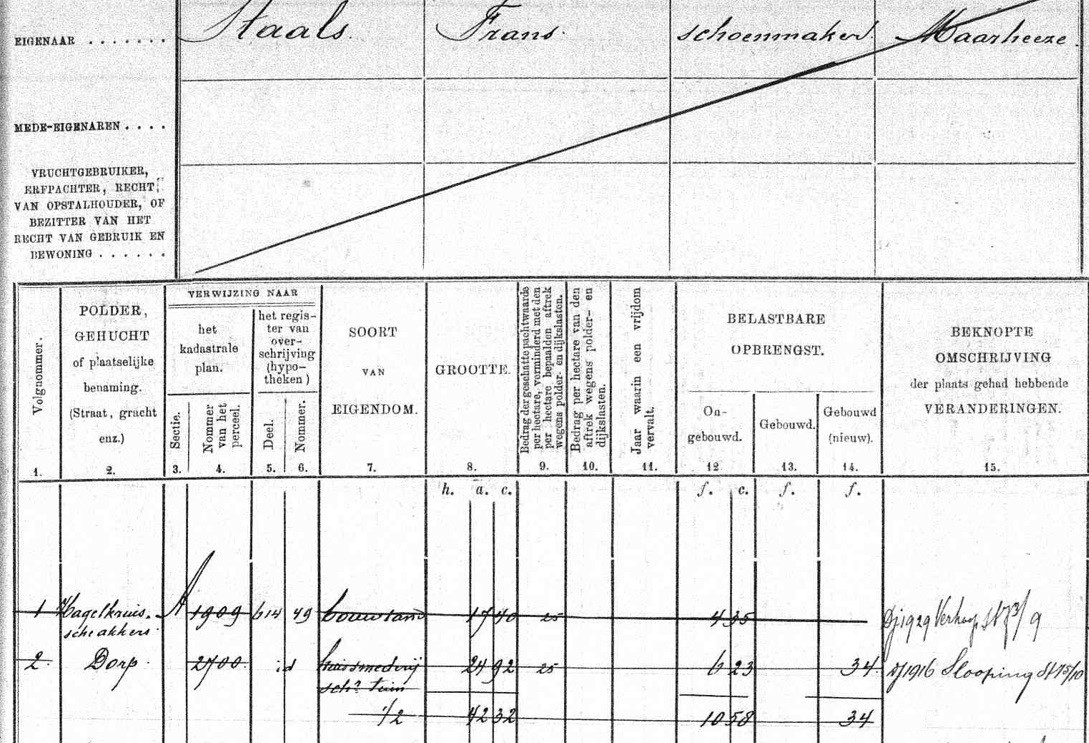 EIGENAAR ....... Staals Frans schoenmaker Maarheeze
MEDE-EIGENAREN ....
VRUCHTGEBRUIKER,
ERFPACHTER, RECHT,
VAN OPSTALHOUDER, OF
BEZITTER VAN HET
RECHT VAN GEBRUIK EN
BEWONING ......
Volgnommer.
1.
POLDER,
GEHUCHT
of plaatselijke
benaming.
(Straat, gracht
enz.)
2.
VERWIJZING NAAR
het
kadastrale
plan.
Sectie.
3.
Nommer
van het
perceel.
4.
het regis-
ter van
over-
schrijving
(hypo-
theken)
Deel.
5.
Nommer.
6.
SOORT
VAN
EIGENDOM.
7.
GROOTTE.
8.
Bedrag der geschatte pachtwaarde
per hectare, verminderd met den
per hectare bepaalden aftrek
wegens polder- en dijkslasten.
9.
Bedrag per hectare van den
aftrek wegens polder- en
dijkslasten.
10.
Jaar waarin een vrijdom
vervalt.
11.
BELASTBARE
OPBRENGST.
On-
gebouwd.
12
Gebouwd.
13.
Gebouwd
(nieuw).
14.
BEKNOPTE
OMSCHRIJVING
der plaats gehad hebbende
VERANDERINGEN.
15.
h. a. c. f. c. f. f.
1 Hagelkruis- A 1909 614 49 bouwland 17 40 25 4 35 Dj 1929 Verkoop 73/9
sche akkers
2 Dorp 2700 id huis smederij 24 92 25 6 23 34 Dj 1916 Slooping 75/10
sch: tuin
1/2 42 32 10 58 34